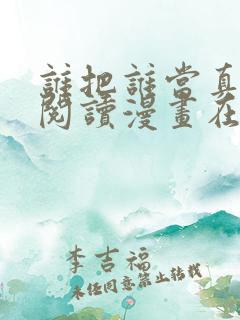 誰把誰當真
閱讀漫畫在
李吉福
未經同意禁止轉載